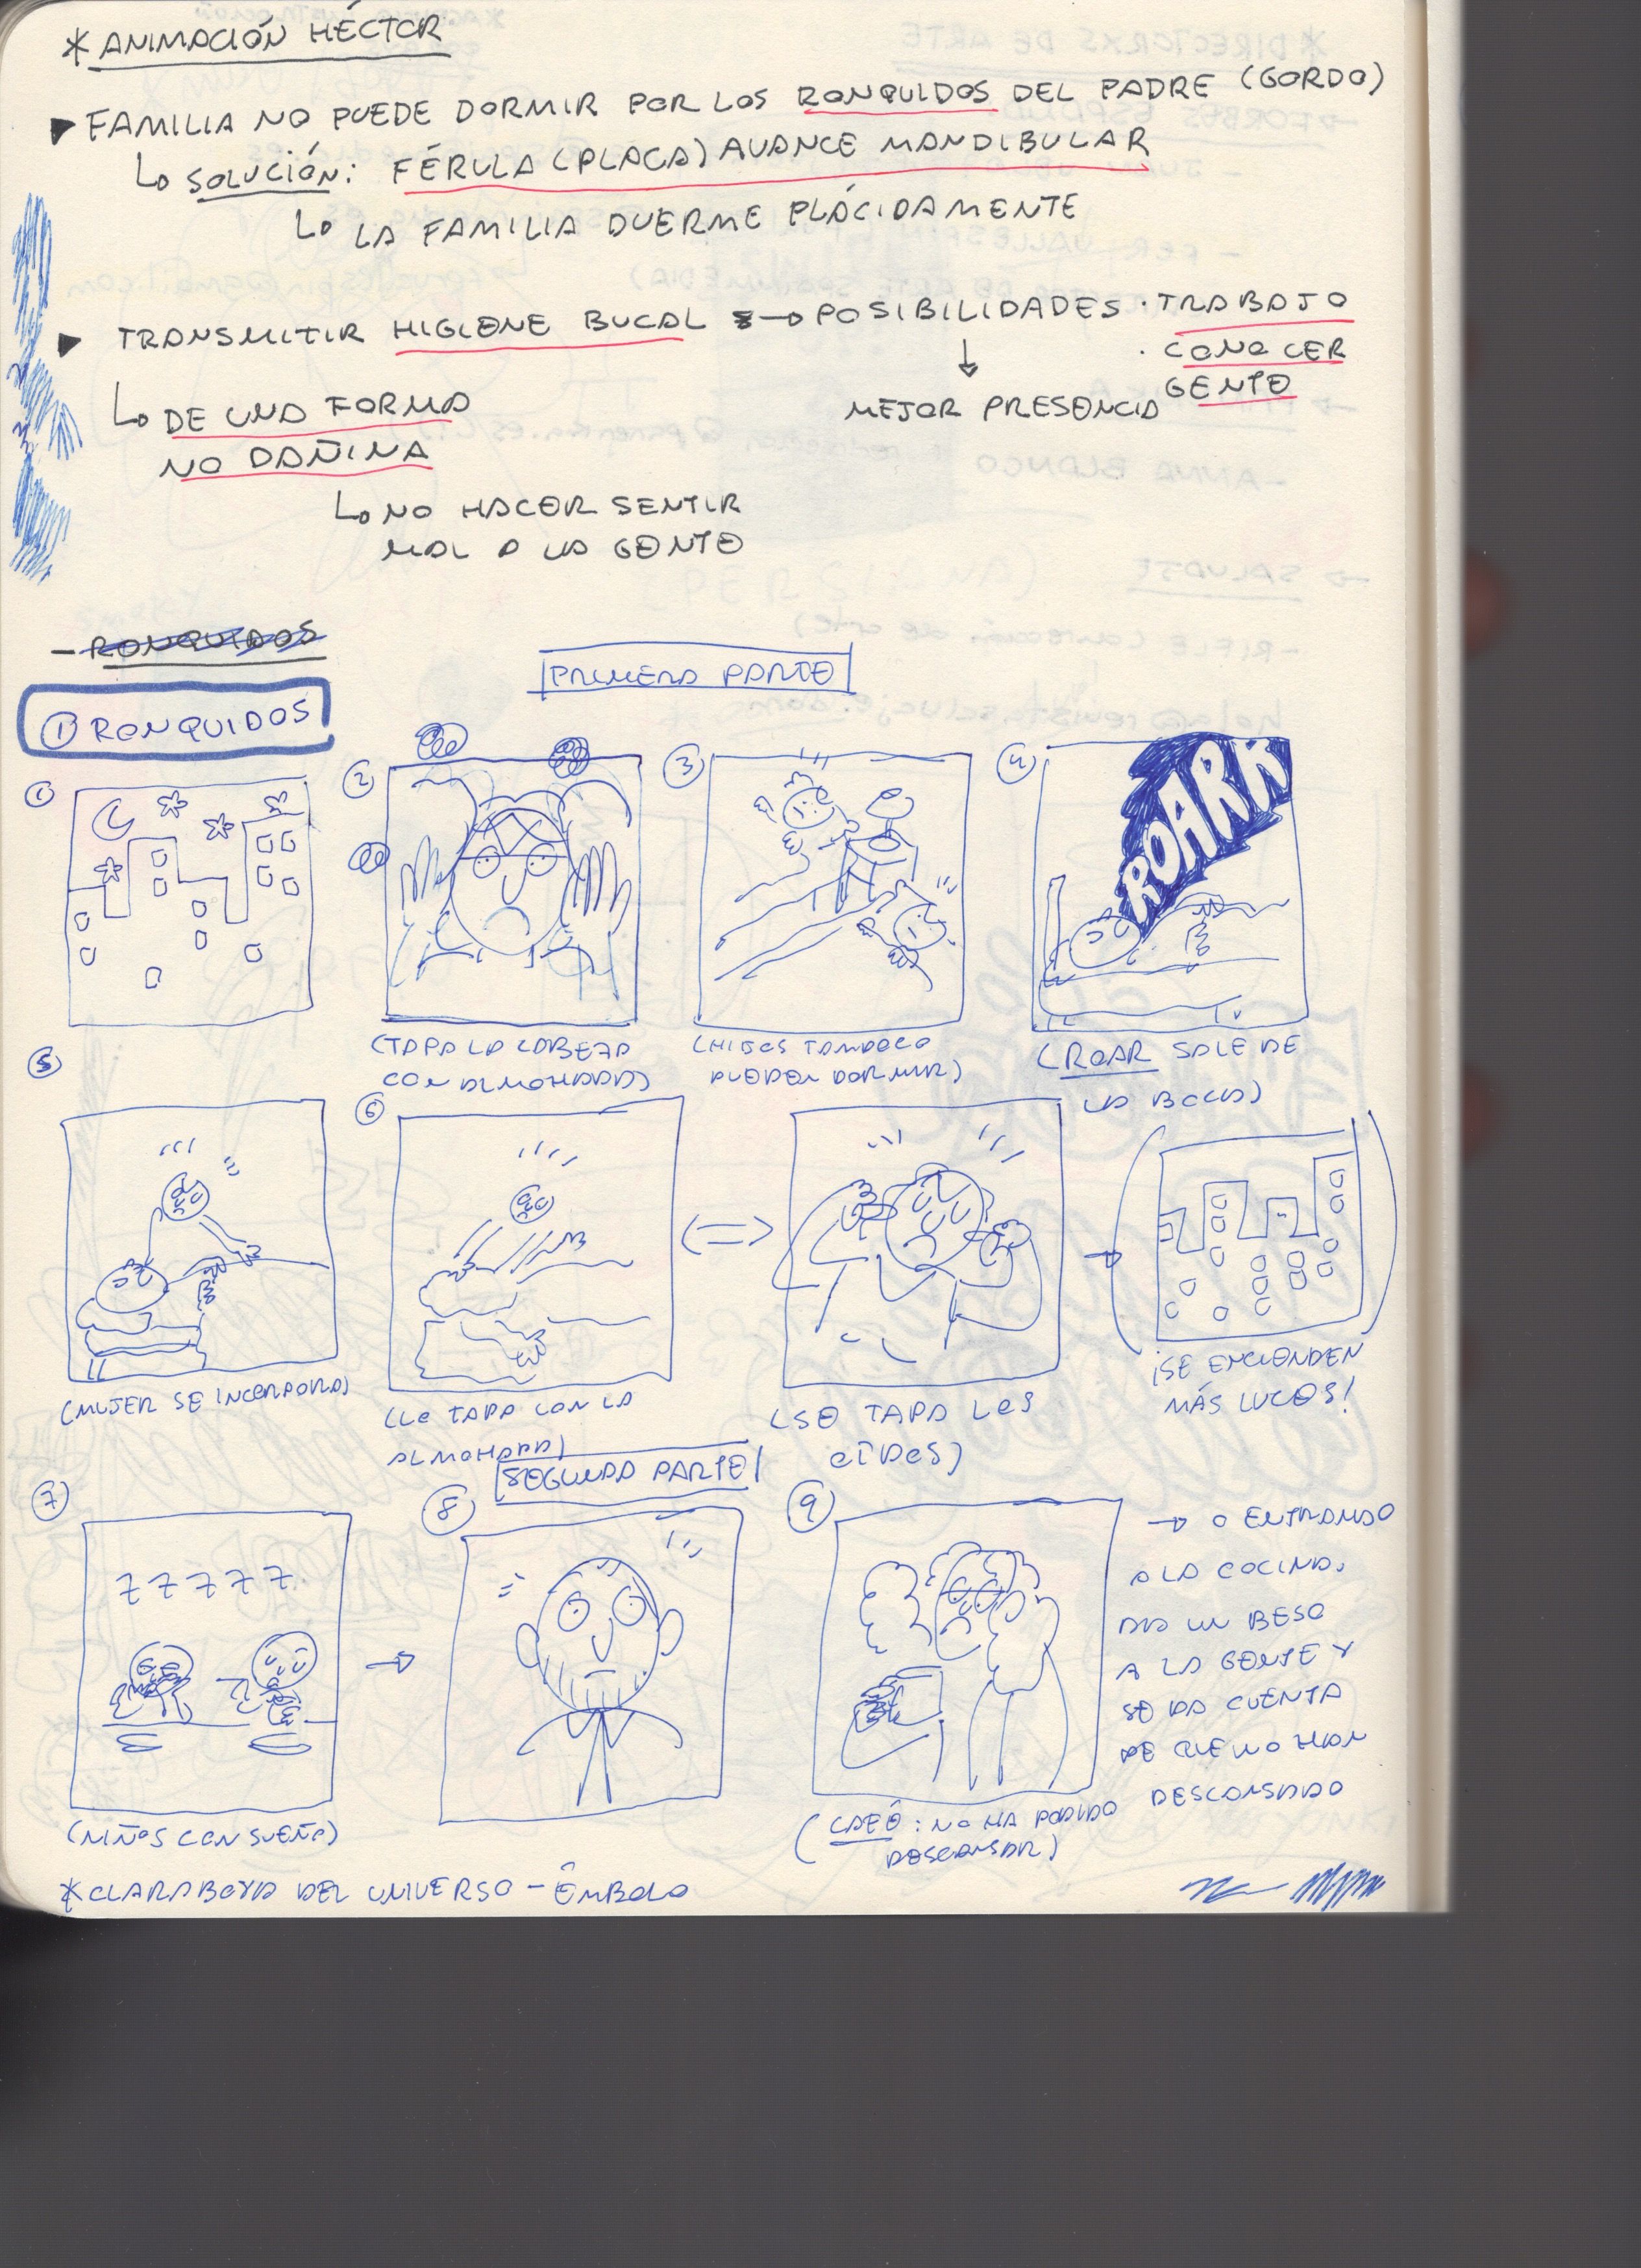 * ANIMACIÓN HÉCTOR
▶ FAMILIA NO PUEDE DORMIR POR LOS RONQUIDOS DEL PADRE (GORDO)
↳ SOLUCIÓN: FÉRULA (PLACA) AVANCE MANDIBULAR
↳ LA FAMILIA DUERME PLÁCIDAMENTE
▶ TRANSMITIR HIGIENE BUCAL → POSIBILIDADES · TRABAJO
· CONOCER
GENTE
↓
MEJOR PRESENCIA
↳ DE UNA FORMA
NO DAÑINA
↳ NO HACER SENTIR
MAL A LA GENTE
- RONQUIDOS
PRIMERA PARTE
① RONQUIDOS
①
②
③
④
ROARR
(TAPA LA CABEZA
CON ALMOHADA)
(HIJOS TAMPOCO
PUEDEN DORMIR)
(ROAR SALE DE
LA BOCA)
⑤
⑥
(MUJER SE INCORPORA)
(LE TAPA CON LA
ALMOHADA)
(SE TAPA LOS
OÍDOS)
¡SE ENCIENDEN
MÁS LUCES!
SEGUNDA PARTE
⑦
⑧
⑨
ZZZZZ
→ O ENTRANDO
A LA COCINA,
DA UN BESO
A LA GENTE Y
SE DA CUENTA
DE QUE NO HAN
DESCANSADO
(NIÑOS CON SUEÑO)
(CAFÉ: NO HA PODIDO
DESCANSAR)
* CLARABOYA DEL UNIVERSO - ÉMBOLO